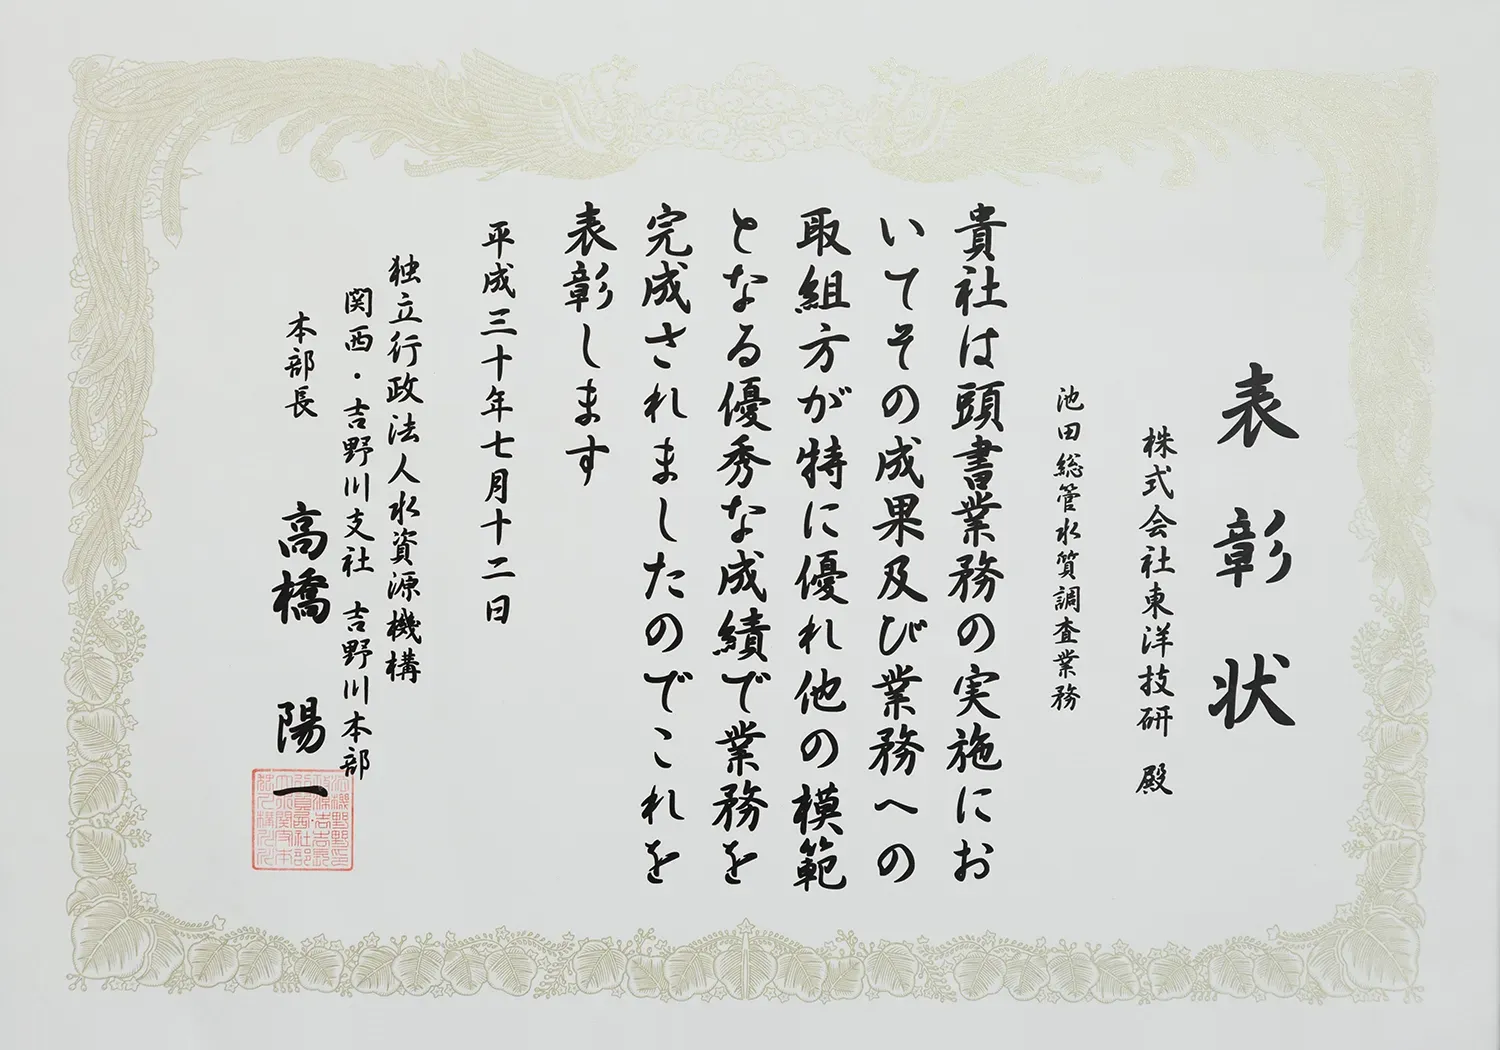 表彰状
株式会社東洋技研 殿
池田総管水質調査業務
貴社は頭書業務の実施にお
いてその成果及び業務への
取組方が特に優れ他の模範
となる優秀な成績で業務を
完成されましたのでこれを
表彰します
平成三十年七月十二日
独立行政法人水資源機構
関西・吉野川支社 吉野川本部
本部長 高橋 陽一